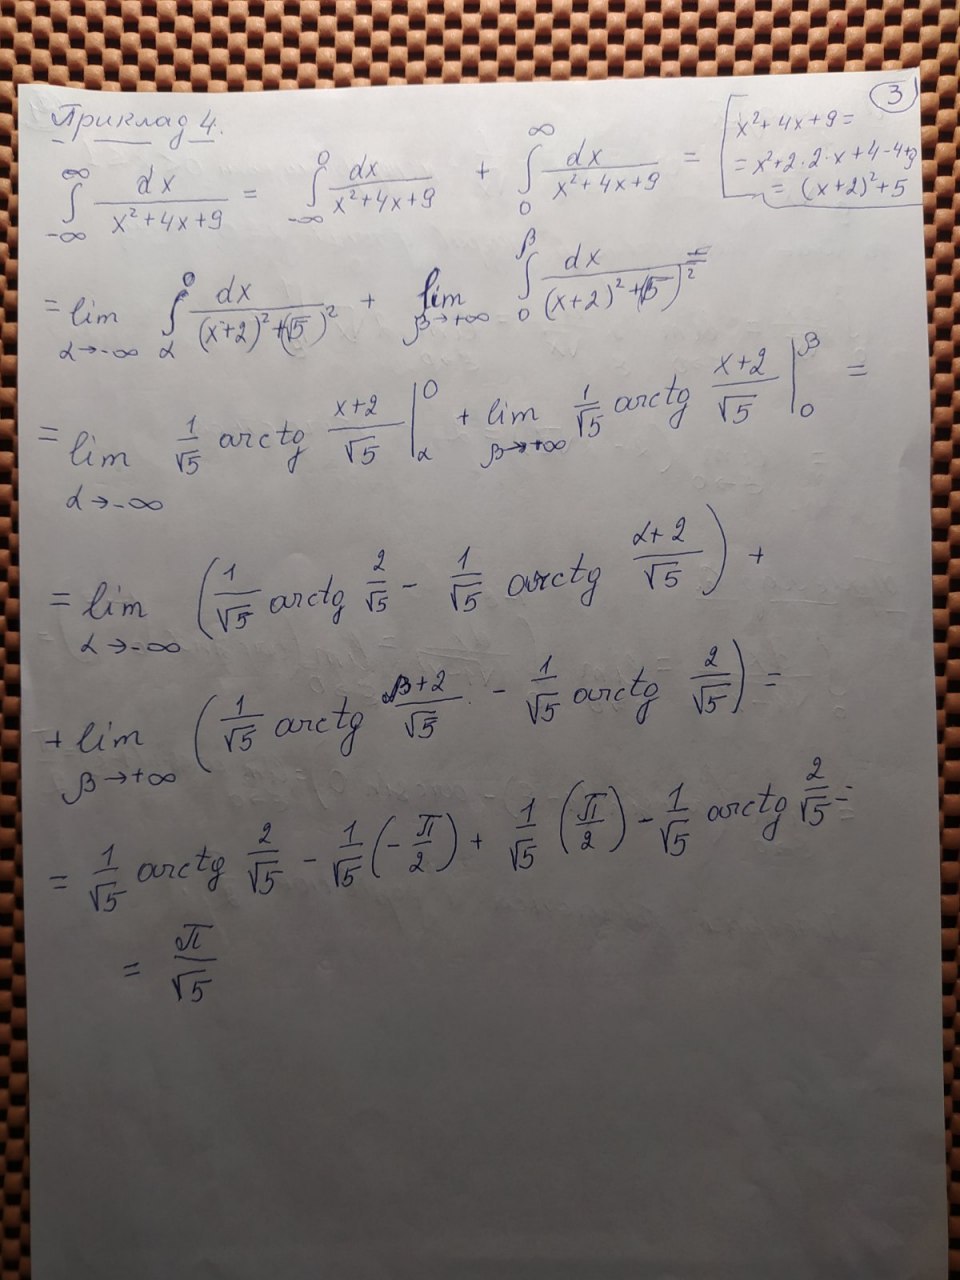 3
Приклад 4.
∫_{-∞}^{∞} dx/(x²+4x+9) = ∫_{-∞}^{0} dx/(x²+4x+9) + ∫_{0}^{∞} dx/(x²+4x+9) =
[x²+4x+9=
= x²+2·2·x+4-4+9
= (x+2)²+5
= lim_{α→-∞} ∫_{α}^{0} dx/((x+2)²+(√5)²) + lim_{β→+∞} ∫_{0}^{β} dx/((x+2)²+(√5)²) =
= lim_{α→-∞} 1/√5 arctg (x+2)/√5 |_{α}^{0} + lim_{β→+∞} 1/√5 arctg (x+2)/√5 |_{0}^{β} =
= lim_{α→-∞} (1/√5 arctg 2/√5 - 1/√5 arctg (α+2)/√5) +
+ lim_{β→+∞} (1/√5 arctg (β+2)/√5 - 1/√5 arctg 2/√5) =
= 1/√5 arctg 2/√5 - 1/√5 (-π/2) + 1/√5 (π/2) - 1/√5 arctg 2/√5 =
= π/√5